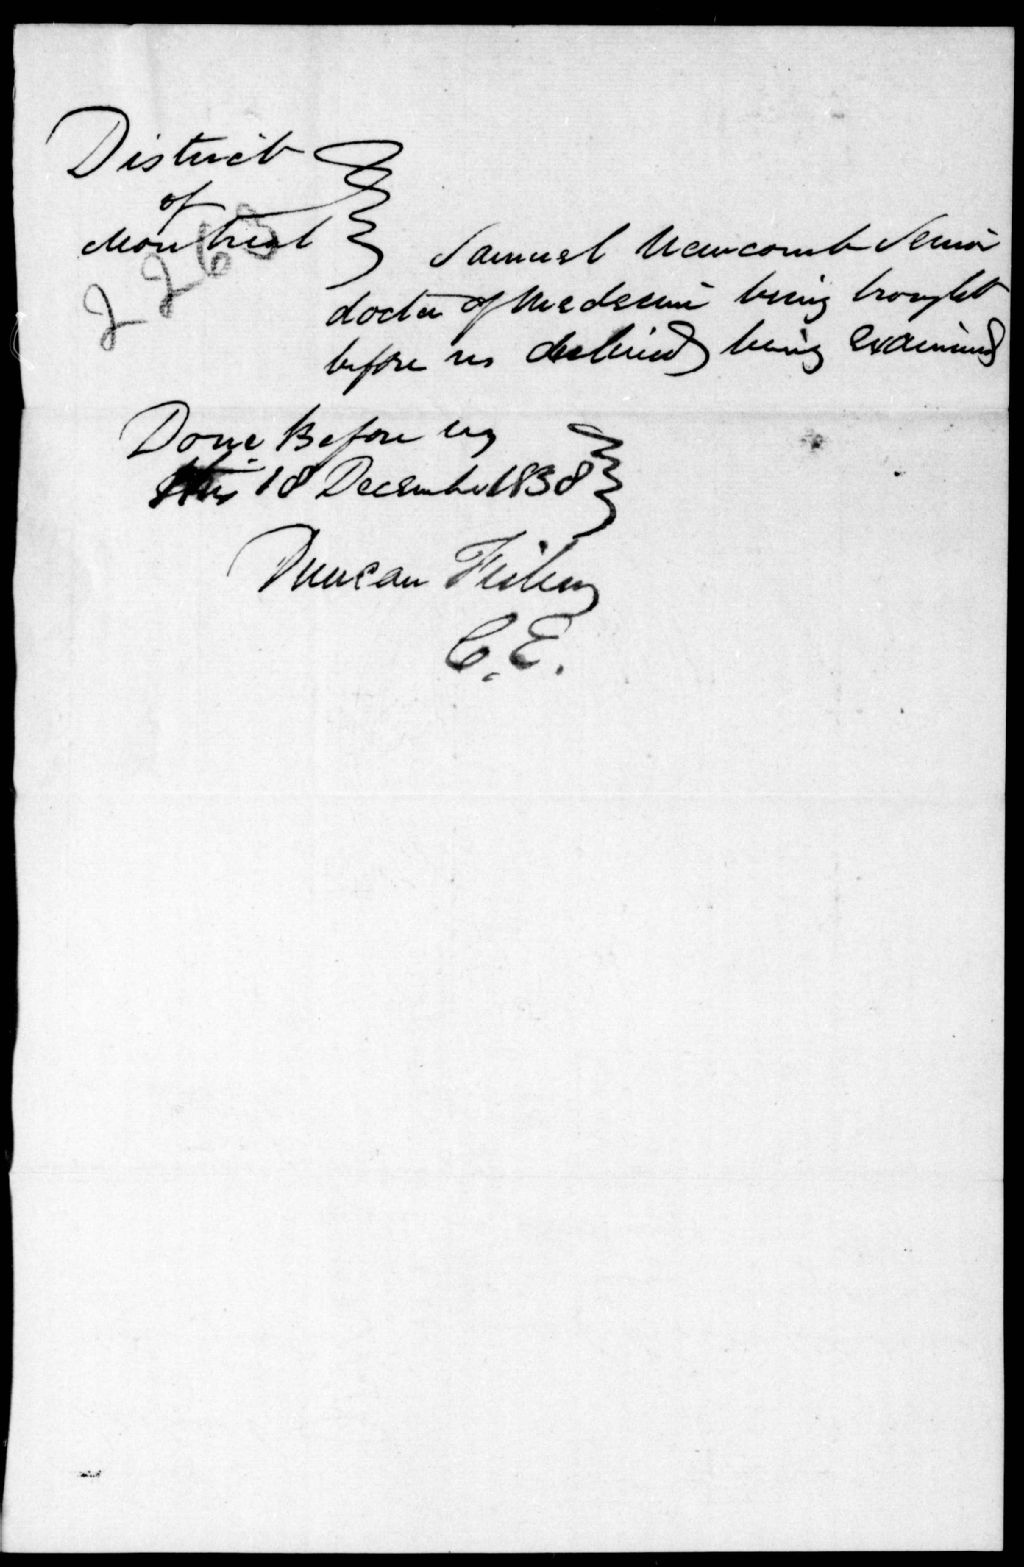 District
of
Montreal
2263
Samuel Newcomb Senior
doctor of Medecine being brought
before us declined being examined
Done Before us
this 18 December 1838
Duncan Fisher
C. E.